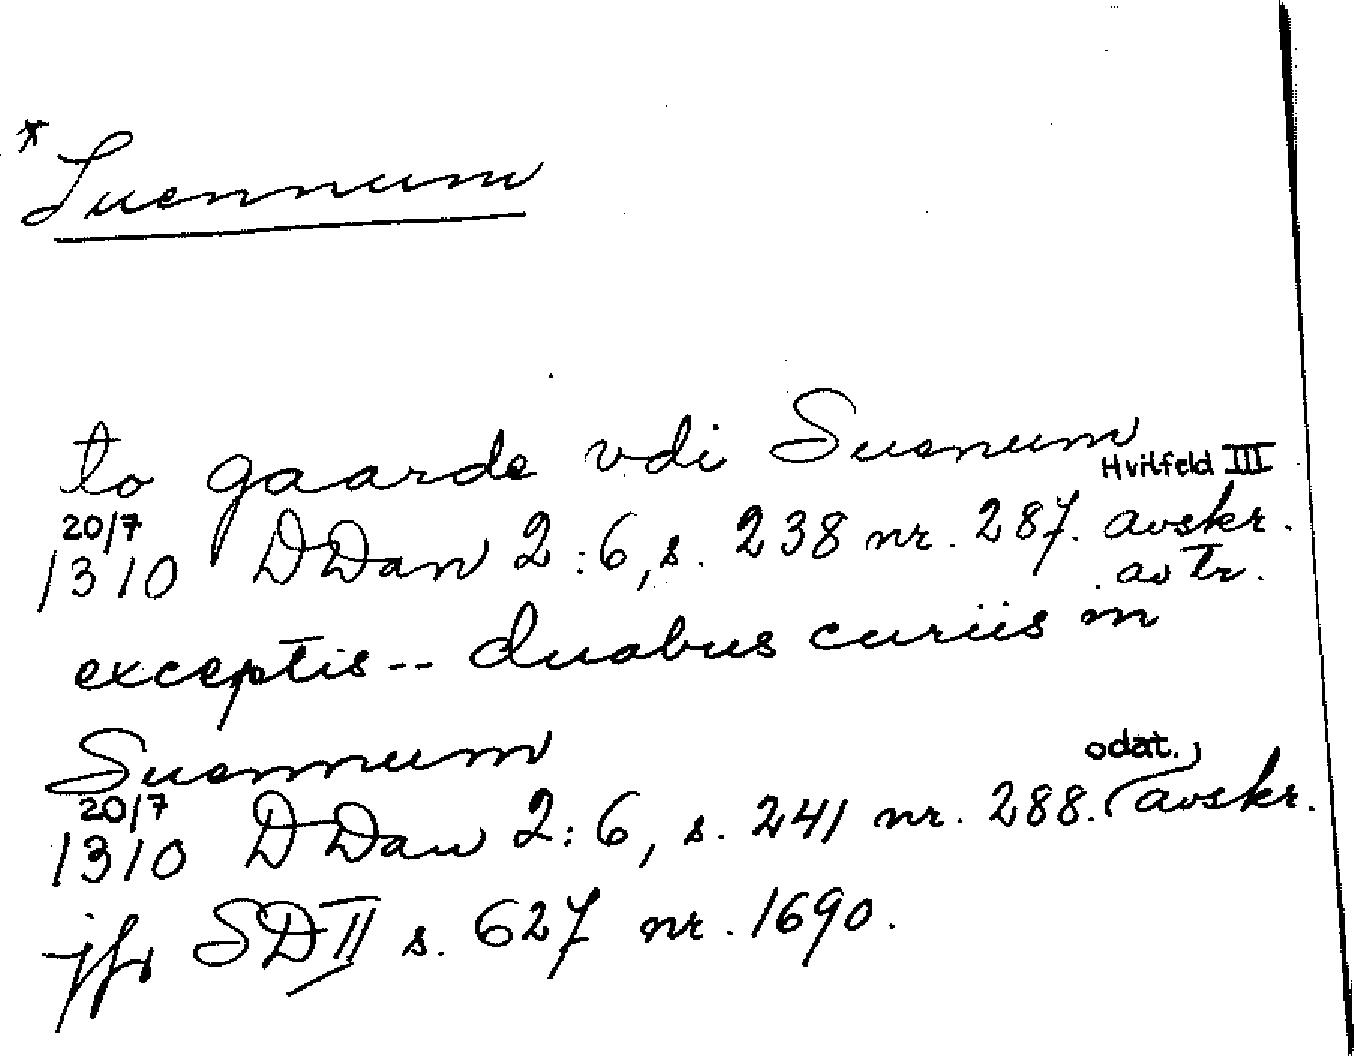 *Suennum
to gaarde vdi Suenum
Hvitfeld III
20/7
1310 DDan 2:6, s. 238 nr. 287. avskr.
av tr.
exceptis -- duabus curiis in
Suennum
odat.
20/7
1310 DDan 2:6, s. 241 nr. 288. (avskr.
jfr SD II s. 627 nr. 1690.